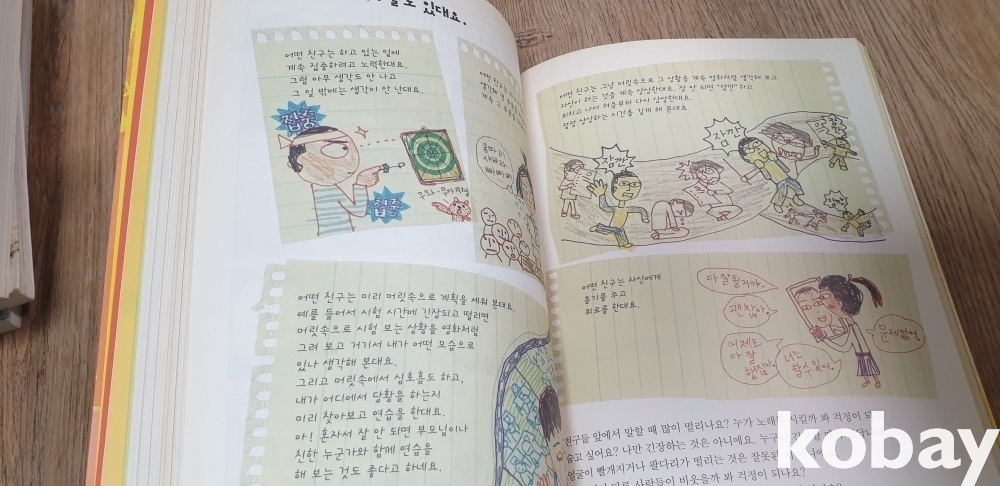 있대요.
어떤 친구는 하고 있는 일에
계속 집중하려고 노력한대요.
그럼 아무 생각도 안 나고
그 일 밖에는 생각이 안 난대요.
집중
집중
무와~무아지경
어떤 친구
생각해
계속 그
어떤 친구는 미리 머릿속으로 계획을 세워 본대요.
예를 들어서 시험 시간에 긴장되고 떨리면
머릿속으로 시험 보는 상황을 영화처럼
그려 보고 거기서 내가 어떤 모습으로
있나 생각해 본대요.
그리고 머릿속에서 심호흡도 하고,
내가 어디에서 당황을 하는지
미리 찾아보고 연습을 한대요.
아! 혼자서 잘 안 되면 부모님이나
친한 누군가와 함께 연습을
해 보는 것도 좋다고 하네요.
어떤 친구는 그냥 머릿속으로 그 상황을 계속 영화처럼 생각해 보고
자신이 하는 것을 계속 상상한대요. 잘 안 되면 "잠깐" 하고
외치고 나서 처음부터 다시 상상한대요.
점점 상상하는 시간을 길게 해 본대요.
잠깐
잠깐
잠깐
잠깐
어떤 친구는 자신에게
용기를 주고
위로를 한대요.
다 잘될거야.
괜찮아
어제도
다 잘
했잖아.
너는
할수있어.
문제없어.
친구들 앞에서 말할 때 많이 떨리나요? 누가 노래를 시킬까 봐 걱정이 되
숨고 싶어요? 나만 긴장하는 것은 아니에요. 누구
얼굴이 빨개지거나 팔다리가 떨리는 것은 잘못된
다른 사람들이 비웃을까 봐 걱정이 되나요?
kobay